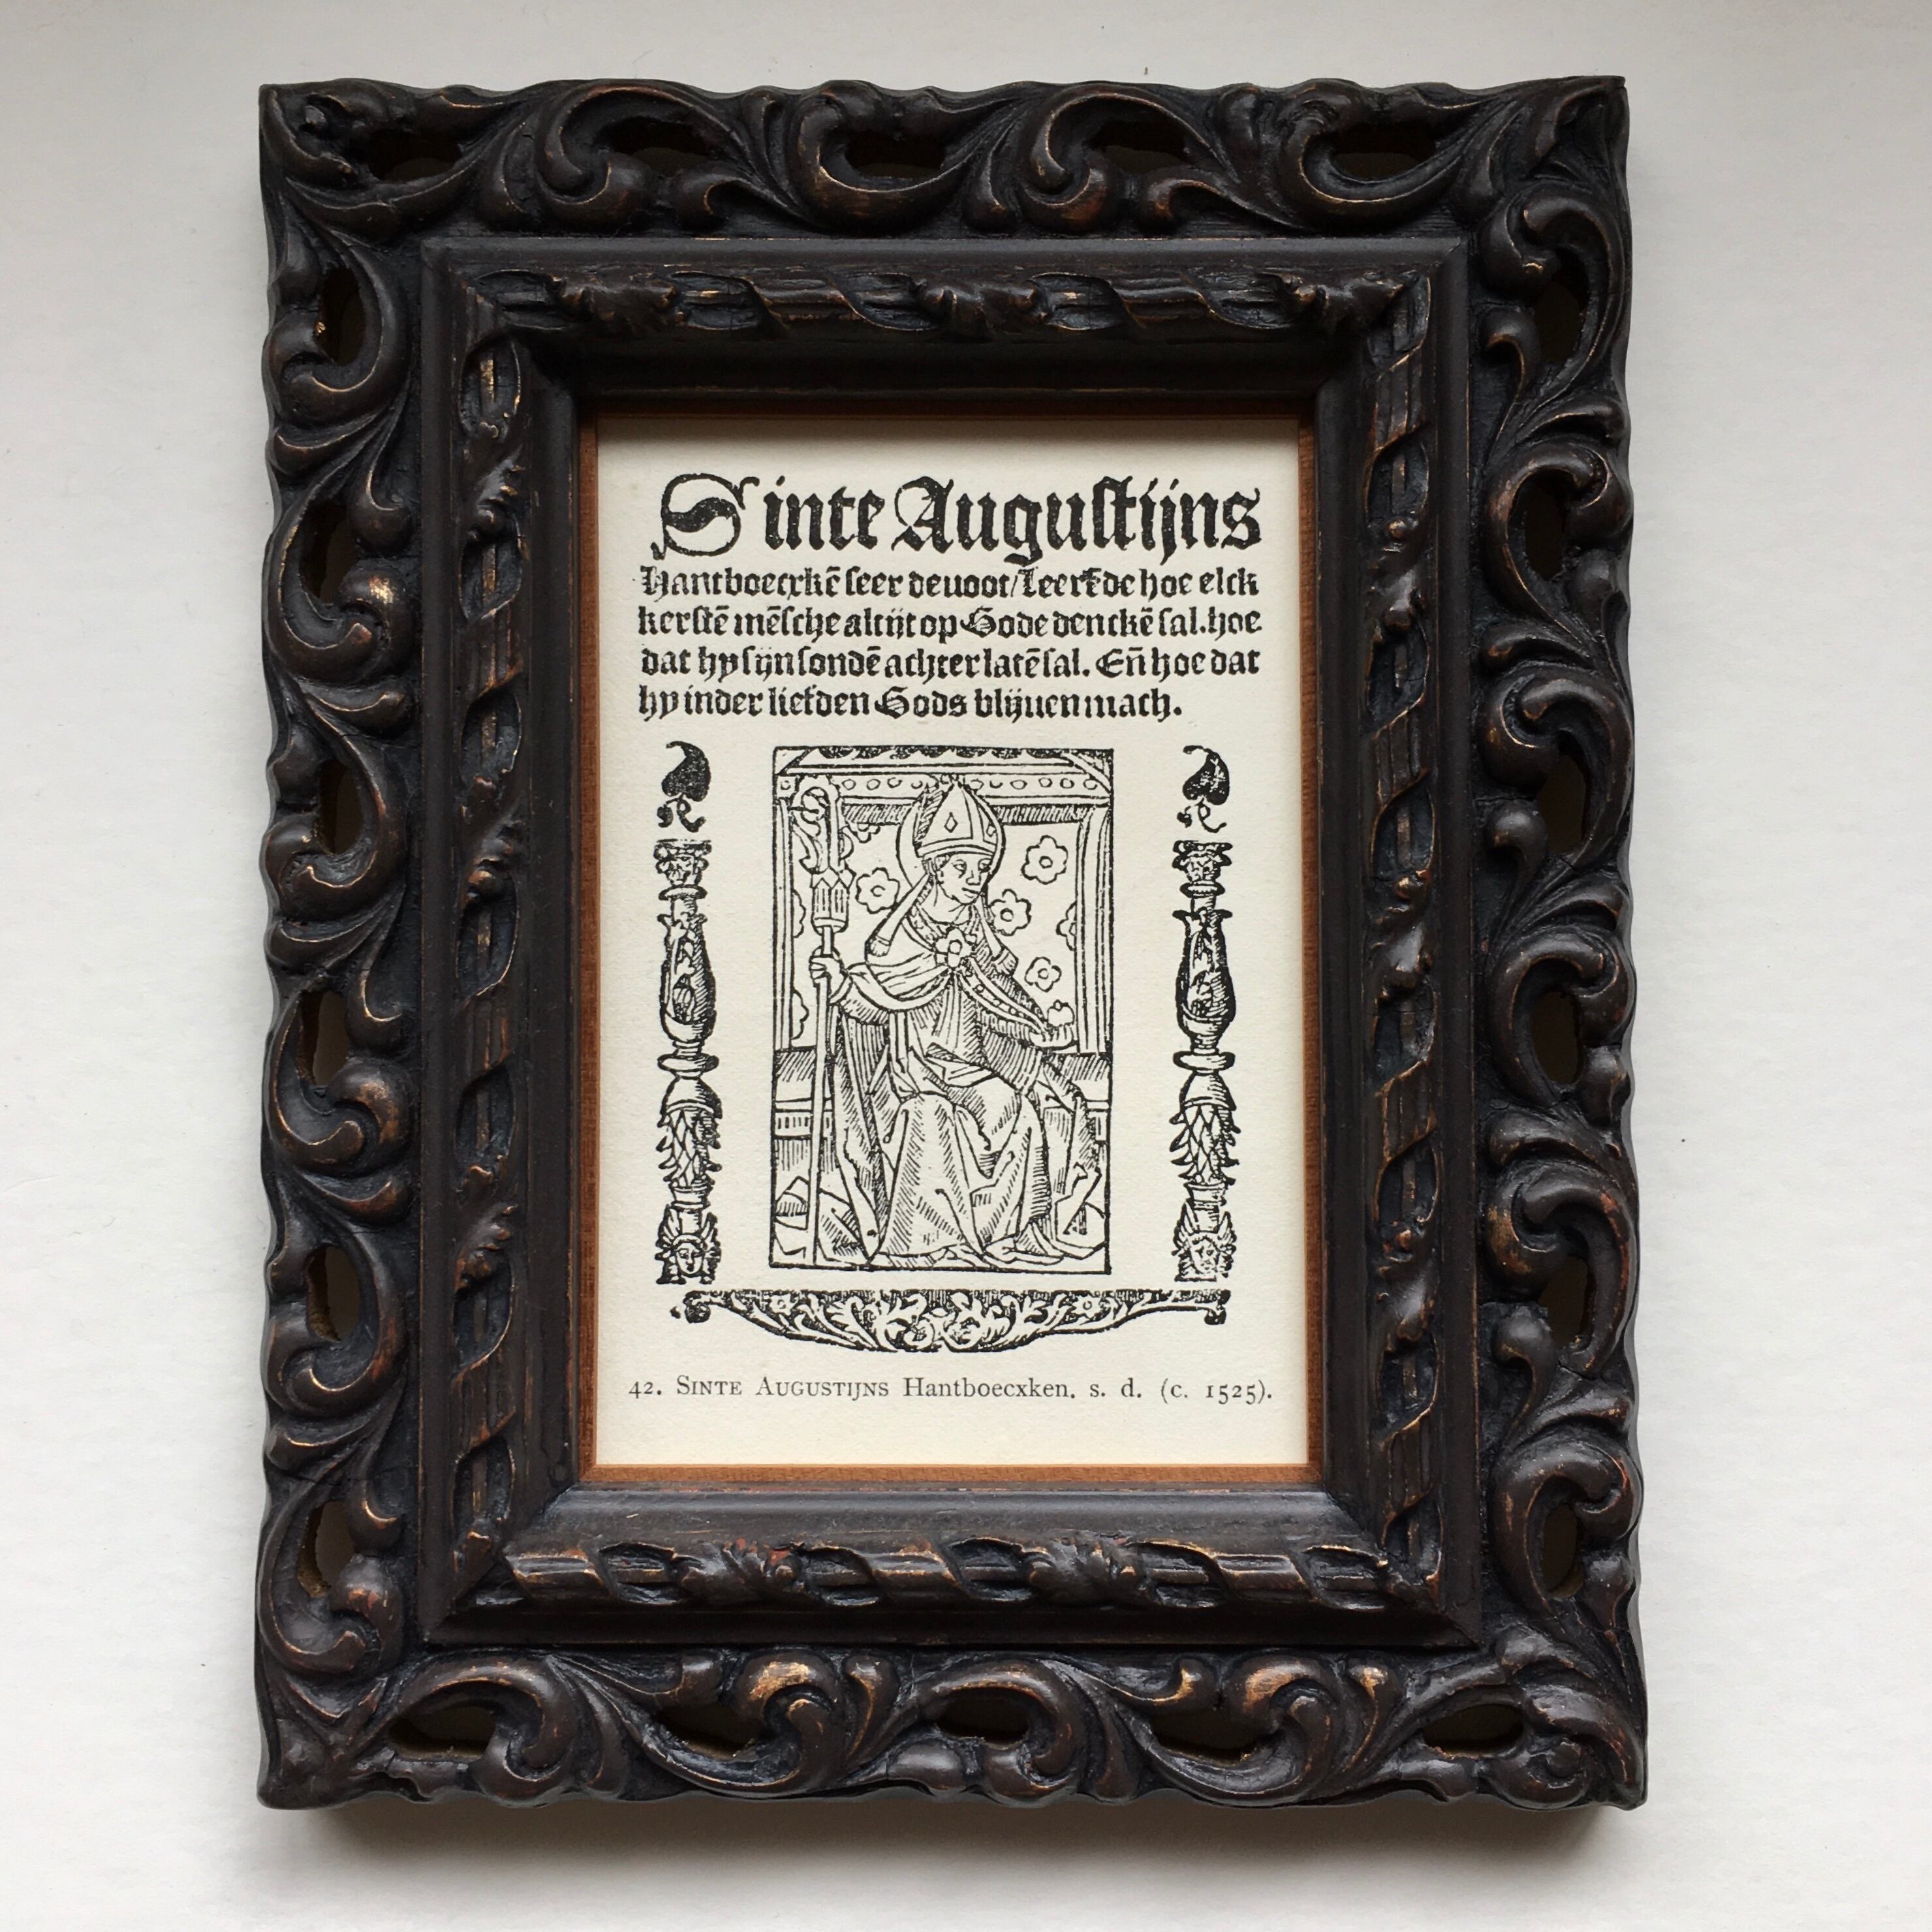 Sinte Augustijns
Hantboecxkē seer deuoot/Leerēde hoe elck
kerstē mēsche altijt op Gode denckē sal. hoe
dat hy sijn sondē achter latē sal. Eñ hoe dat
hy inder liefden Gods blijuen mach.
42. SINTE AUGUSTIJNS Hantboecxken. s. d. (c. 1525).